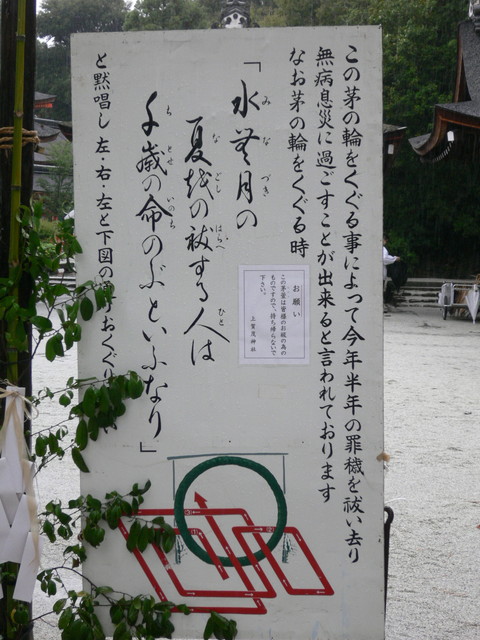 この茅の輪をくぐる事によって今年半年の罪穢を祓い去り
無病息災に過ごすことが出来ると言われております
なお茅の輪をくぐる時
「水無月の
みなづき
夏越の祓する人は
なごし
はらへ
ひと
千歳の命のぶといふなり」
ちとせ
いのち
と黙唱し 左・右・左と下図の通りおくぐり
お願い
この茅萱は皆様のお祓の為の
ものですので、持ち帰らないで
下さい。
上賀茂神社